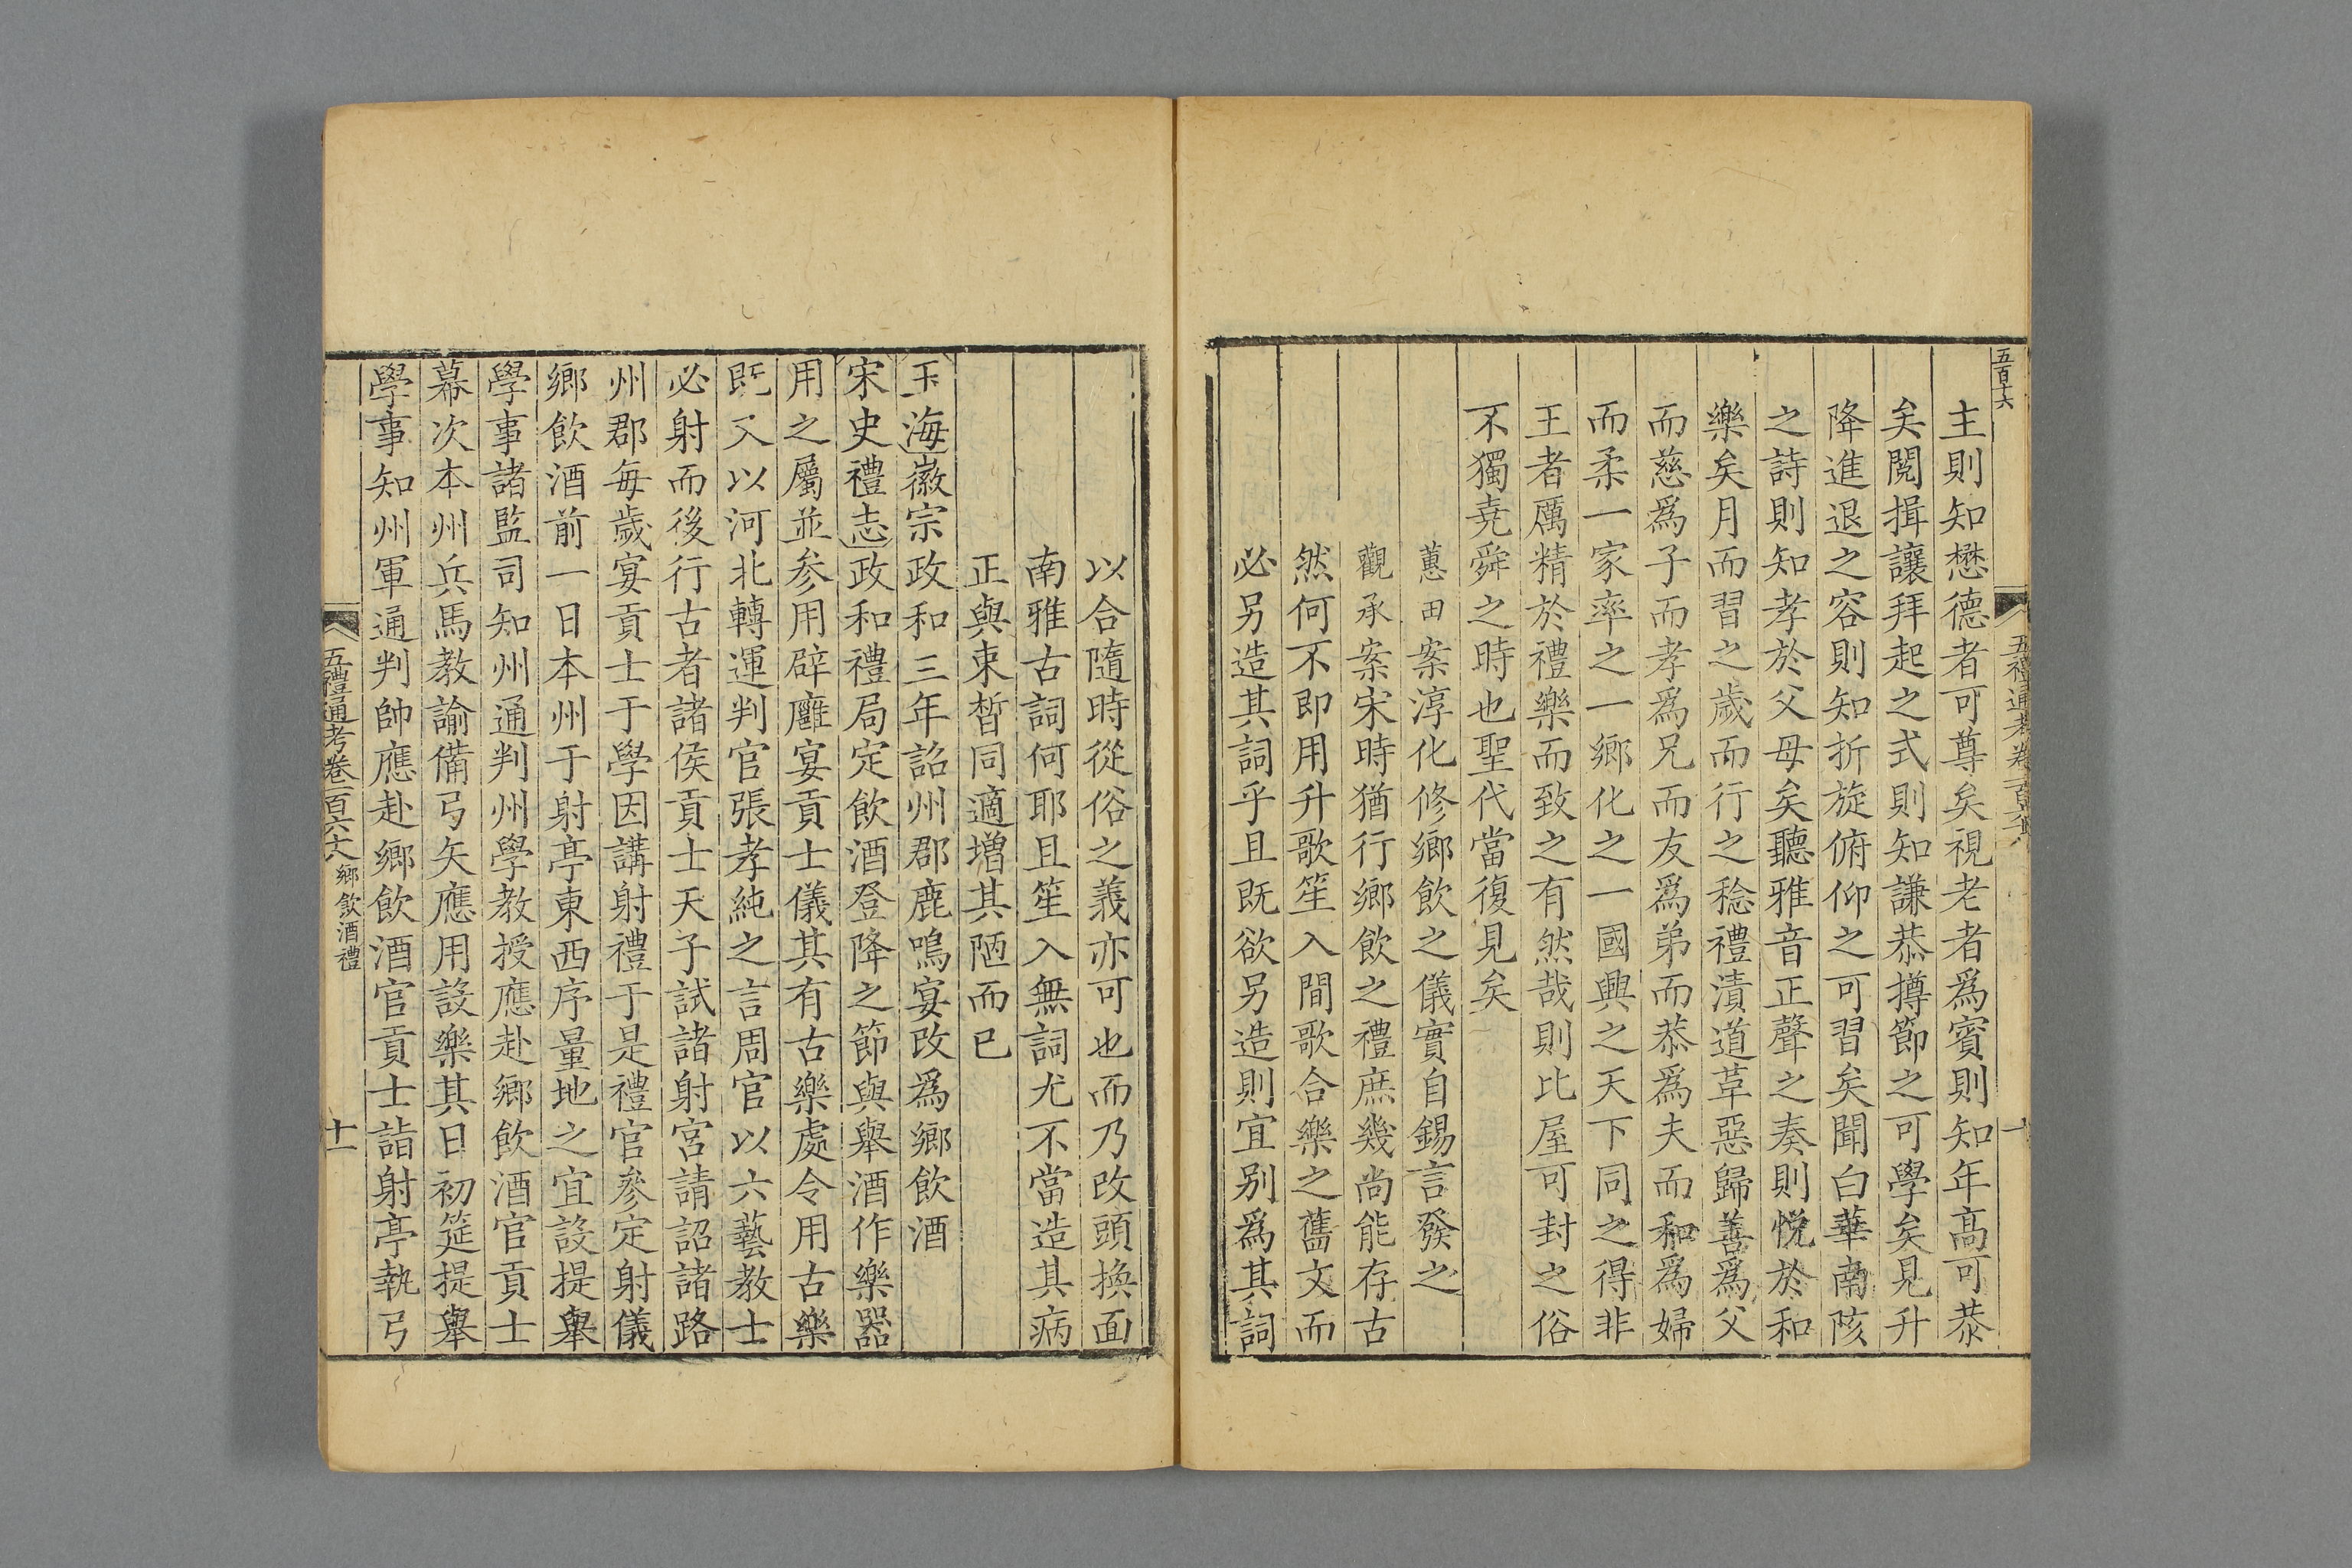 五百十六
五禮通考卷一百六十八
十
主則知懋德者可尊矣視老者爲賓則知年高可恭
矣閱揖讓拜起之式則知謙恭撙節之可學矣見升
降進退之容則知折旋俯仰之可習矣聞白華南陔
之詩則知孝於父母矣聽雅音正聲之奏則悅於和
樂矣月而習之歲而行之稔禮漬道革惡歸善爲父
而慈爲子而孝爲兄而友爲弟而恭爲夫而和爲婦
而柔一家率之一鄉化之一國興之天下同之得非
王者厲精於禮樂而致之有然哉則比屋可封之俗
不獨堯舜之時也聖代當復見矣
蕙田案淳化修鄉飲之儀實自錫言發之
觀承案宋時猶行鄉飲之禮庶幾尚能存古
然何不即用升歌笙入間歌合樂之舊文而
必另造其詞乎且既欲另造則宜別爲其詞
以合隨時從俗之義亦可也而乃改頭換面
南雅古詞何耶且笙入無詞尤不當造其病
正與束晳同適增其陋而已
玉海徽宗政和三年詔州郡鹿鳴宴改爲鄉飲酒
宋史禮志政和禮局定飲酒登降之節與舉酒作樂器
用之屬並參用辟廱宴貢士儀其有古樂處令用古樂
既又以河北轉運判官張孝純之言周官以六藝教士
必射而後行古者諸侯貢士天子試諸射宮請詔諸路
州郡每歲宴貢士于學因講射禮于是禮官參定射儀
鄉飲酒前一日本州于射亭東西序量地之宜設提舉
學事諸監司知州通判州學教授應赴鄉飲酒官貢士
幕次本州兵馬教諭備弓矢應用設樂其日初筵提舉
學事知州軍通判帥應赴鄉飲酒官貢士詣射亭執弓
五禮通考卷一百六十八 鄉飲酒禮
十一